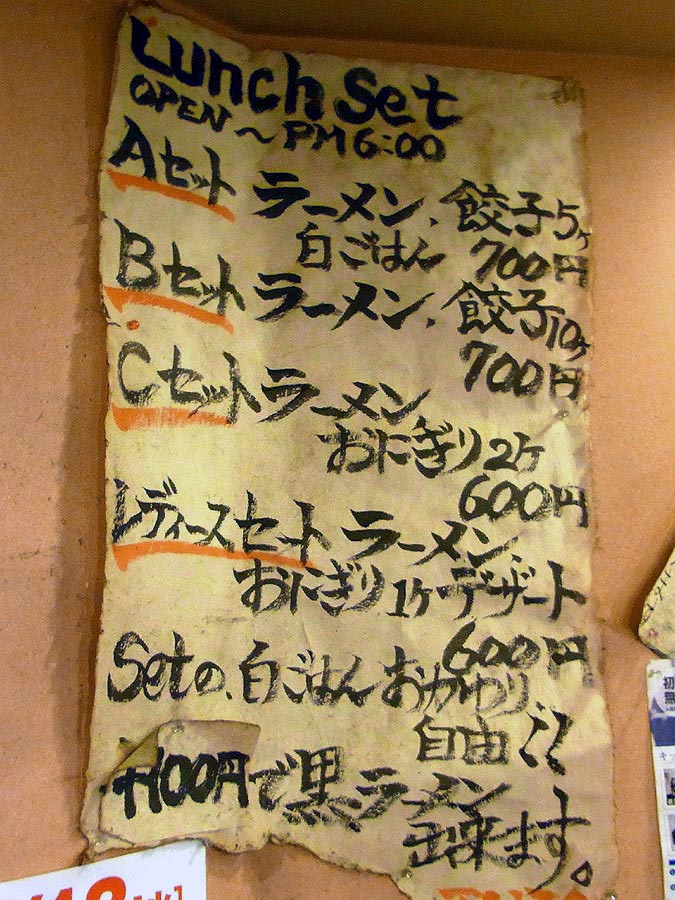 Lunch Set
OPEN ~ PM 6:00
Aセット ラーメン、餃子5ヶ
白ごはん 700円
Bセット ラーメン、餃子10ヶ
700円
Cセット ラーメン
おにぎり2ケ
600円
レディースセット ラーメン、
おにぎり1ケ デザート
600円
Setの、白ごはんおかわり
自由
+100円で黒ラーメン
出来ます。